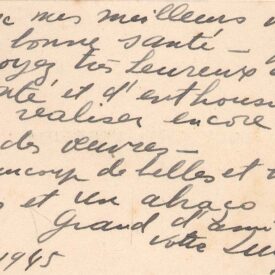 mes meilleurs
bonne santé —
oyez très heureux
nté et d'enthous
réaliser encore
des œuvres —
aucoup de belles et
s et un abraço
Grand d'ami
votre
1945